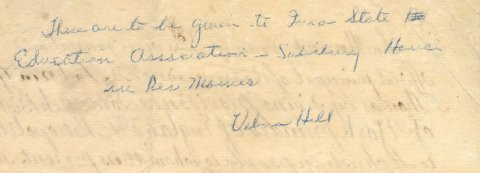 These are to be given to Iowa State
Education Association - Salisbury House
in Des Moines
Velma Hill